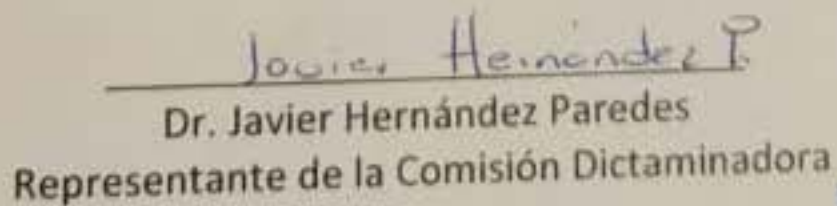 Javier Hernández P.
Dr. Javier Hernández Paredes
Representante de la Comisión Dictaminadora